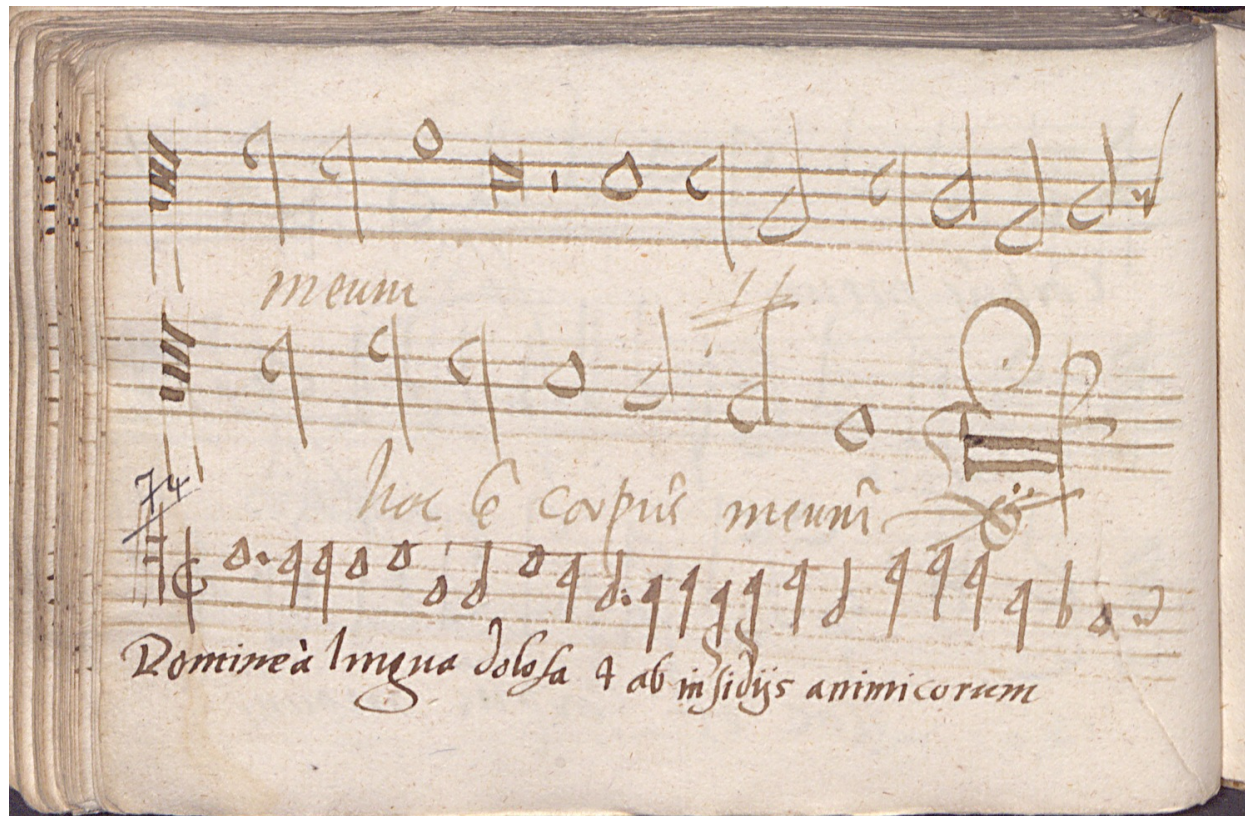 meum
hoc ē corpus meum
74
Domine à lingua dolosa & ab insidijs animicorum